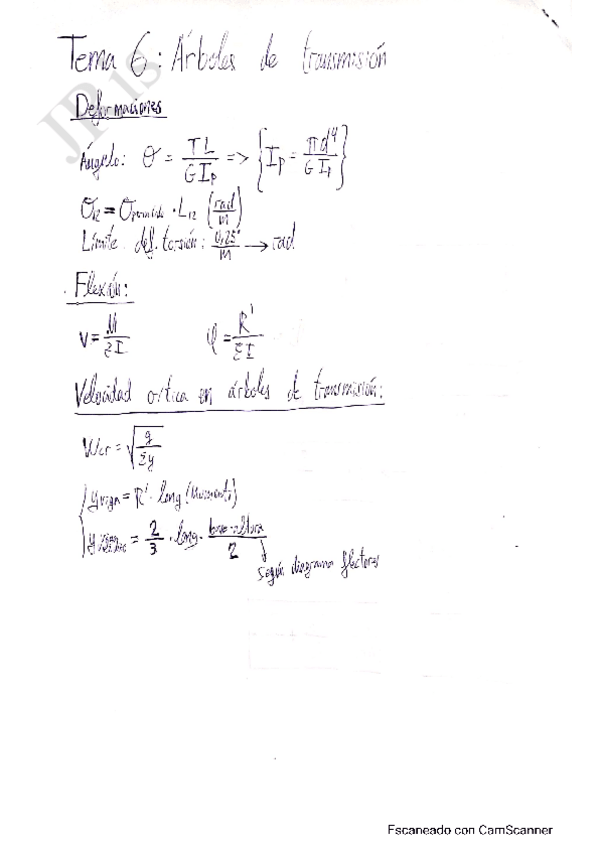 Tema 6: Árboles de transmisión
JP 15
Deformaciones
Ángulo: θ = TL / G Ip => { Ip = πd⁴ / G Ip }
θ12 = θpermitido · L12 (rad/m)
Límite def. torsión: 0,25° / m → rad
Flexión:
v = M / EI φ = R' / EI
Velocidad crítica en árboles de transmisión:
Wcr = √(g / Σy)
y viga = R' · long (
y = 2/3 · long · base · altura / 2
según diagrama flectores
Escaneado con CamScanner